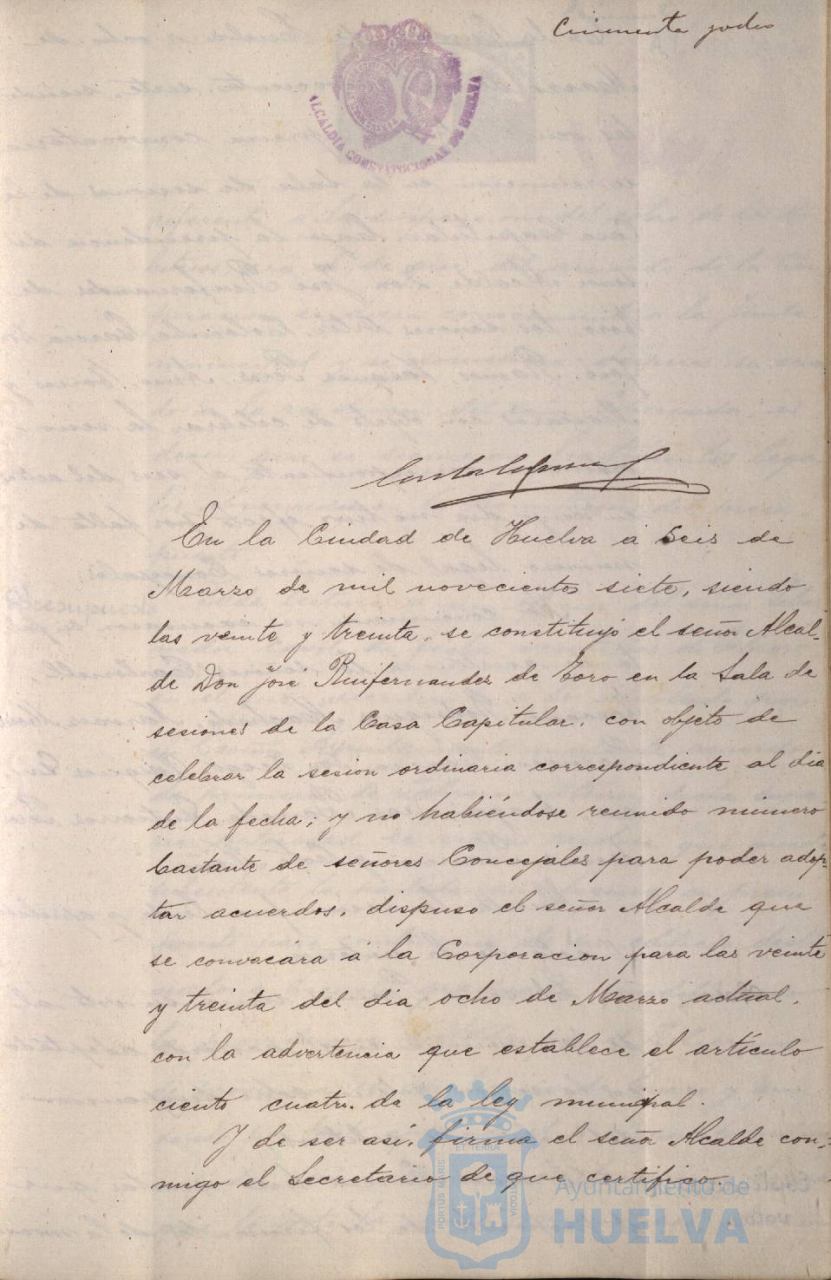 Cincuenta y dos
ALCALDIA CONSTITUCIONAL DE HUELVA
En la Ciudad de Huelva á seis de
Marzo de mil novecientos siete, siendo
las veinte y treinta, se constituyó el señor Alcal-
de Don José Ruifernandez de Toro en la Sala de
sesiones de la Casa Capitular, con objeto de
celebrar la sesion ordinaria correspondiente al dia
de la fecha; y no habiéndose reunido número
bastante de señores Concejales para poder adop-
tar acuerdos, dispuso el señor Alcalde que
se convocára á la Corporacion para las veinte
y treinta del dia ocho de Marzo actual,
con la advertencia que establece el artículo
ciento cuatro de la ley municipal.
Y de ser así, firma el señor Alcalde con-
migo el Secretario de que certifico.
PORTUS MARIS ET TERRAE CUSTODIA
Ayuntamiento de
HUELVA